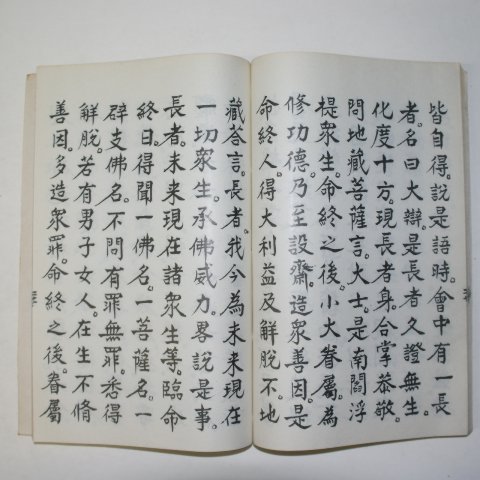 皆自得。說是語時。會中有一長
者。名曰大辯。是長者久證無生。
化度十方。現長者身。合掌恭敬。
問地藏菩薩言。大士。是南閻浮
提衆生。命終之後。小大眷屬。為
修功德。乃至設齋。造衆善因。是
命終人。得大利益及解脫不。地
藏答言。長者。我今為未來現在
一切衆生。承佛威力。畧說是事。
長者。未來現在諸衆生等。臨命
終日。得聞一佛名。一菩薩名。一
辟支佛名。不問有罪無罪。悉得
解脫。若有男子女人。在生不脩
善因。多造衆罪。命終之後。眷屬